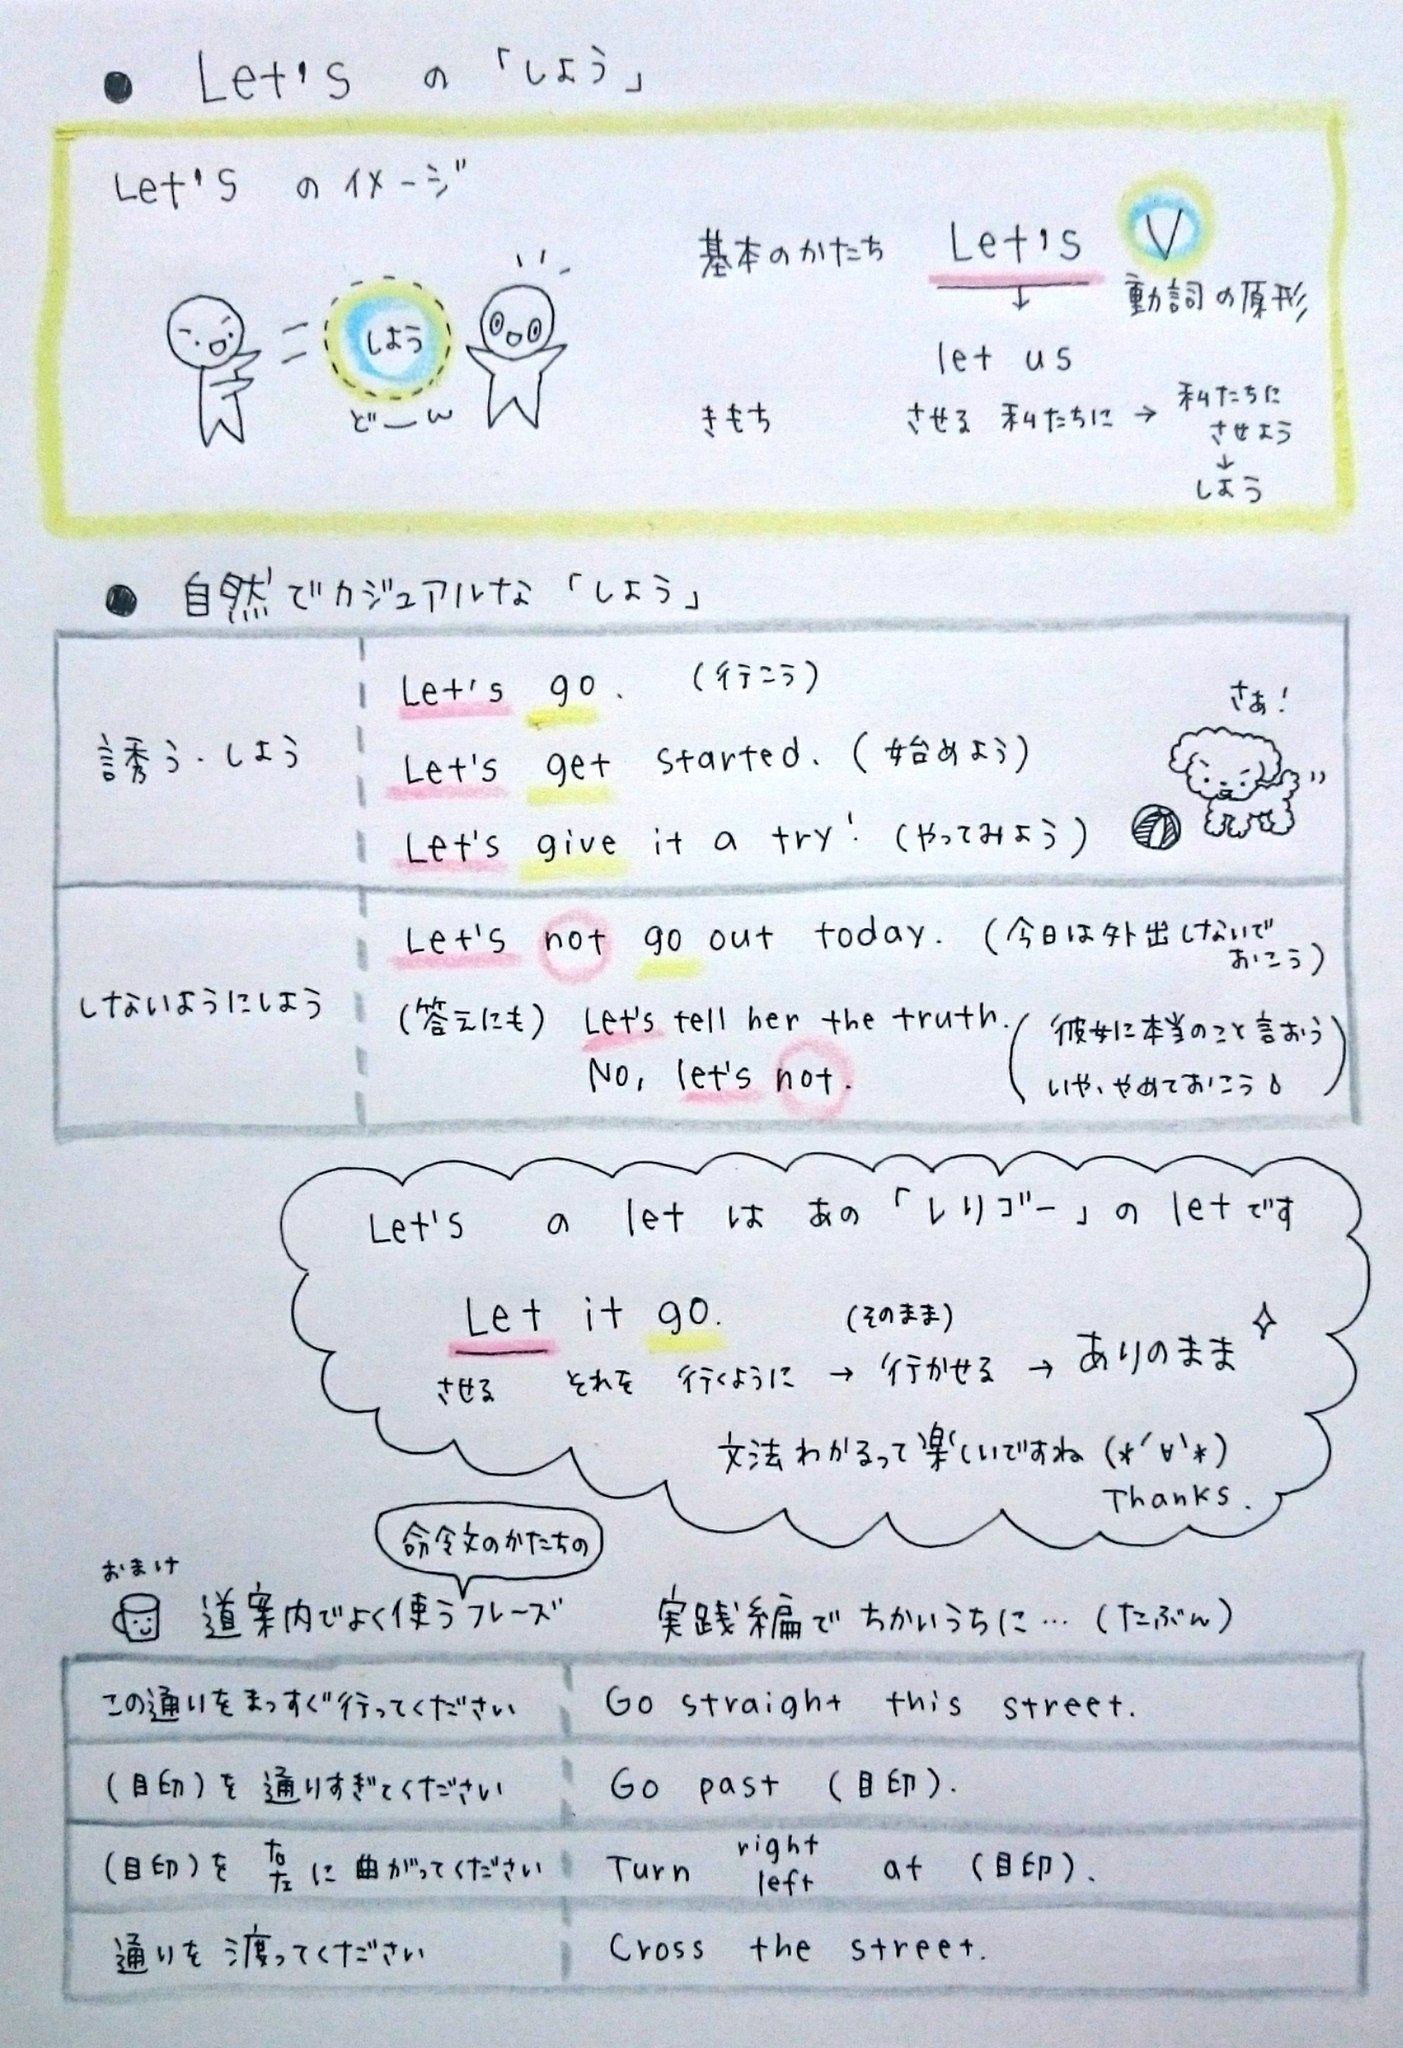 ● Let's の「しよう」
Let's のイメージ
しよう
どーん
基本のかたち Let's V
↓ 動詞の原形
let us
きもち させる 私たちに → 私たちに
させよう
↓
しよう
● 自然でカジュアルな「しよう」
誘う・しよう
Let's go. (行こう)
Let's get started. (始めよう)
Let's give it a try! (やってみよう)
さぁ!
しないようにしよう
Let's not go out today. (今日は外出しないで
おこう)
(答えにも) Let's tell her the truth.
No, let's not.
(彼女に本当のこと言おう
いや、やめておこう)
Let's の let は あの「レリゴー」の let です
Let it go.
させる それを 行くように → (そのまま) 行かせる → ありのまま
文法わかるって楽しいですね (*´∀`*)
Thanks.
命令文のかたちの
おまけ
道案内でよく使うフレーズ 実践編でちかいうちに…(たぶん)
この通りをまっすぐ行ってください Go straight this street.
(目印)を通りすぎてください Go past (目印).
(目印)を 右 左 に曲がってください Turn right left at (目印).
通りを渡ってください Cross the street.